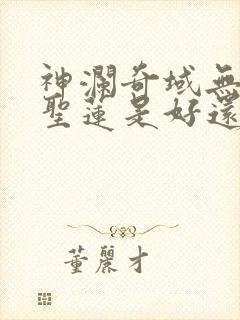 神瀾奇域無
聖蓮是好還
董麗才